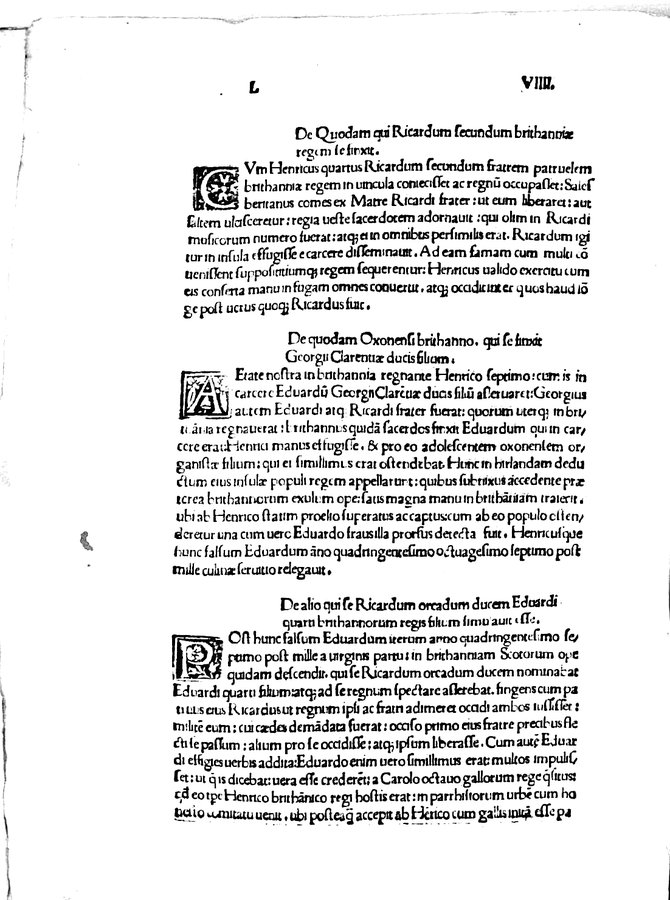 L VIIII.
De Quodam qui Ricardum secundum brithanniæ
regem se finxit.
CVm Henricus quartus Ricardum secundum fratrem patruelem
brithanniæ regem in uincula conieciſſet ac regnũ occupaſſet: Sariſ
beritanus comes ex Matre Ricardi frater: ut eum liberaret: aut
ſaltem ulciſceretur: regia ueſte ſacerdotem adornauit: qui olim in Ricardi
muſicorum numero fuerat: atq; ei in omnibus perſimilis erat. Ricardum igi
tur in inſula effugiſſe e carcere diſſeminauit. Ad eam famam cum multi cõ
ueniſſent ſuppoſititiumq; regem ſequerentur: Henricus ualido exercitu cum
eis conſerta manu in fugam omnes conuertit, atq; occidit inter quos haud lõ
ge poſt uerus quoq; Ricardus fuit.
De quodam Oxonenſi brithanno, qui ſe finxit
Georgii Clarentiæ ducis filium.
AEtate noſtra in brithannia regnante Henrico ſeptimo: cum is in
carcere Eduardũ Georgii Clarentiæ ducis filiũ aſeruaret: Georgius
autem Eduardi atq; Ricardi frater fuerat: quorum uterq; in bri/
tãnia regnauerat: brithannus quidã ſacerdos finxit Eduardum qui in car/
cere erat: Henrici manus effugiſſe. & pro eo adoleſcentem oxonienſem or/
ganiſtæ filium: qui ei ſimillimus erat oſtendebat. Hunc in hirlandam dedu
ctum eius inſulæ populi regem appellarunt: quibus ſubnixus accedente præ
terea brithannorum exulum ope: ſatis magna manu in brithãniam traiecit.
ubi ab Henrico ſtatim prœlio ſuperatus ac captus: cum ab eo populo oſten/
deretur una cum uero Eduardo fraus illa prorſus detecta fuit. Henricuſque
hunc falſum Eduardum ãno quadringenteſimo octuageſimo ſeptimo poſt
mille culinæ ſeruitio relegauit.
De alio qui ſe Ricardum orcadum ducem Eduardi
quarti brithannorum regis filium ſimulauit eſſe.
POſt hunc falſum Eduardum iterum anno quadringenteſimo ſe/
ptimo poſt mille a uirginis partu: in brithanniam Scotorum ope
quidam deſcendit, qui ſe Ricardum orcadum ducem nominabat
Eduardi quarti filium: atq; ad ſe regnum ſpectare aſſerebat. fingens cum pa
truus eius Ricardus ut regnum ipſi ac fratri adimeret occidi ambos iuſſiſſet:
militẽ eum: cui cædes demãdata fuerat: occiſo primo eius fratre precibus fle
cti ſe paſſum: alium pro ſe occidiſſe: atq; ipſum liberaſſe. Cum autẽ Eduar
di effigies uerbis addita: Eduardo enim uero ſimillimus erat: multos impuliſ
ſet: ut q̃ is dicebat: uera eſſe crederẽt: a Carolo octauo gallorum rege q̃ſitus
eo tpe Henrico brithãnico regi hoſtis erat: in parrhiſiorum urbẽ cum ho
comitatu uenit, ubi poſteaq̃ accepit ab Hẽrico cum gallis initã eſſe pa